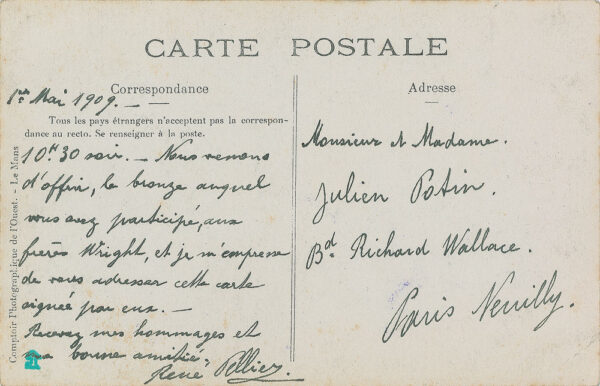 CARTE POSTALE
Correspondance
1er Mai 1909. —
Tous les pays étrangers n'acceptent pas la correspon-
dance au recto. Se renseigner à la poste.
10H30 soir. — Nous venons
d'offrir, le bronze auquel
vous avez participé, aux
frères Wright, et je m'empresse
de vous adresser cette carte
signée par eux. —
Recevez mes hommages et
ma bonne amitié,
René Pellier
Comptoir Photographique de l'Ouest. - Le Mans
Adresse
Monsieur & Madame.
Julien Potin.
Bd. Richard Wallace.
Paris Neuilly.